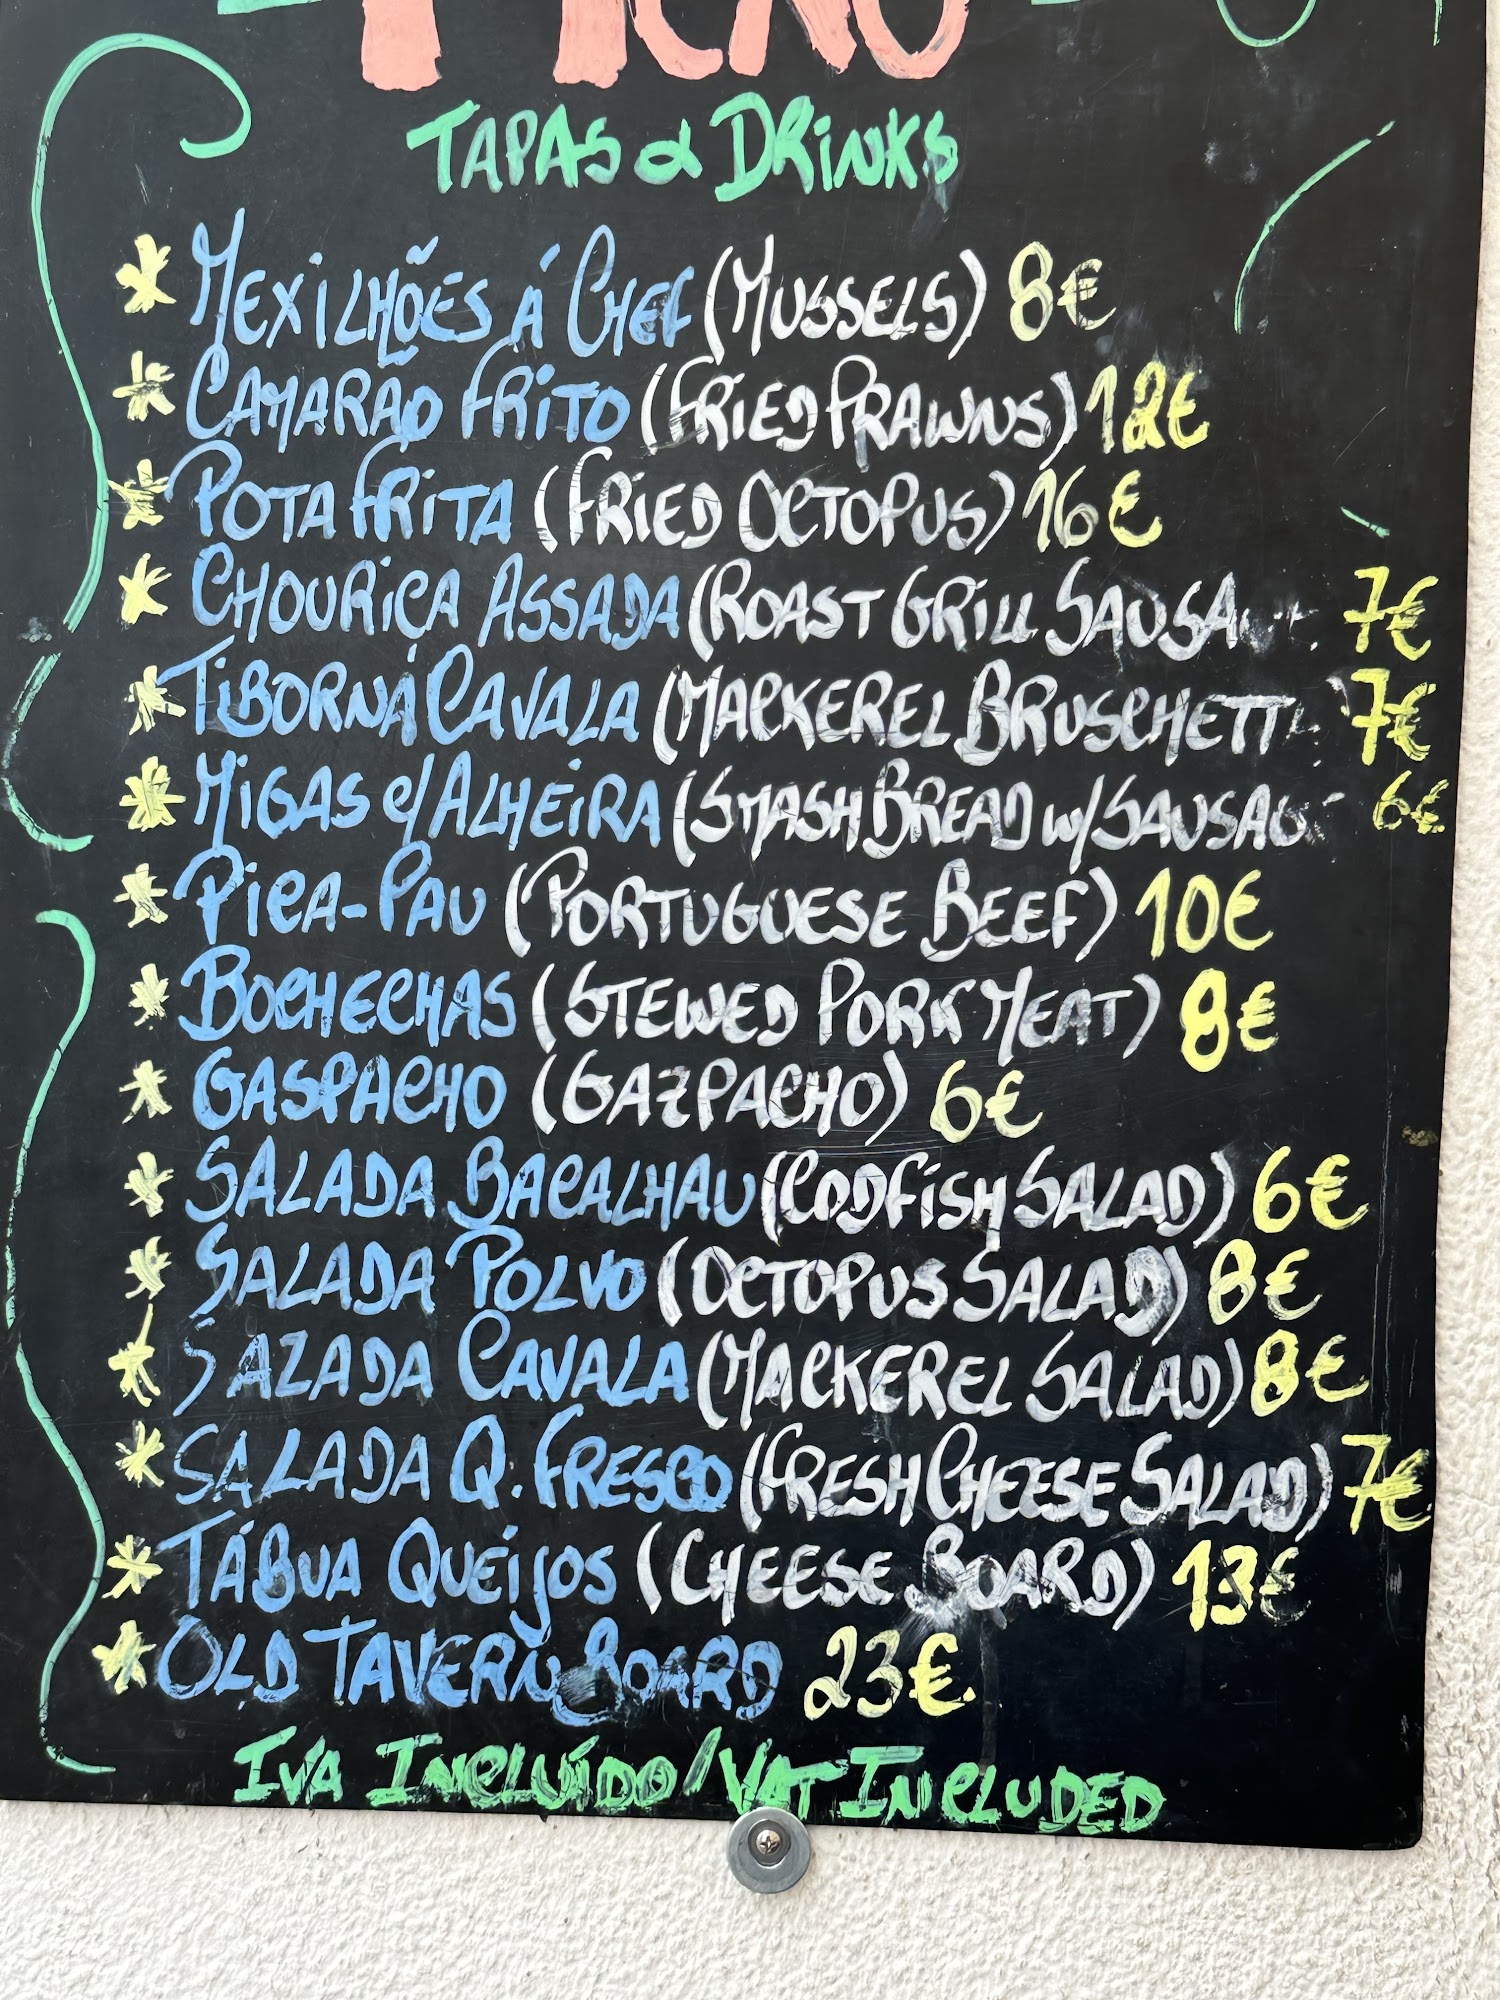 TAPAS & DRINKS
* MEXILHÕES Á CHEF (MUSSELS) 8€
* CAMARÃO FRITO (FRIED PRAWNS) 12€
* POTA FRITA (FRIED OCTOPUS) 16€
* CHOURIÇA ASSADA (ROAST GRILL SAUSA 7€
* TIBORNA CAVALA (MACKEREL BRUSCHETT 7€
* MIGAS C/ALHEIRA (SMASH BREAD W/SAUSAG 6€
* PICA-PAU (PORTUGUESE BEEF) 10€
* BOCHECHAS (STEWED PORK MEAT) 8€
* GASPACHO (GAZPACHO) 6€
* SALADA BACALHAU (CODFISH SALAD) 6€
* SALADA POLVO (OCTOPUS SALAD) 8€
* SALADA CAVALA (MACKEREL SALAD) 8€
* SALADA Q. FRESCO (FRESH CHEESE SALAD) 7€
* TÁBUA QUEIJOS (CHEESE BOARD) 13€
* OLD TAVERN BOARD 23€
IVA INCLUÍDO/VAT INCLUDED